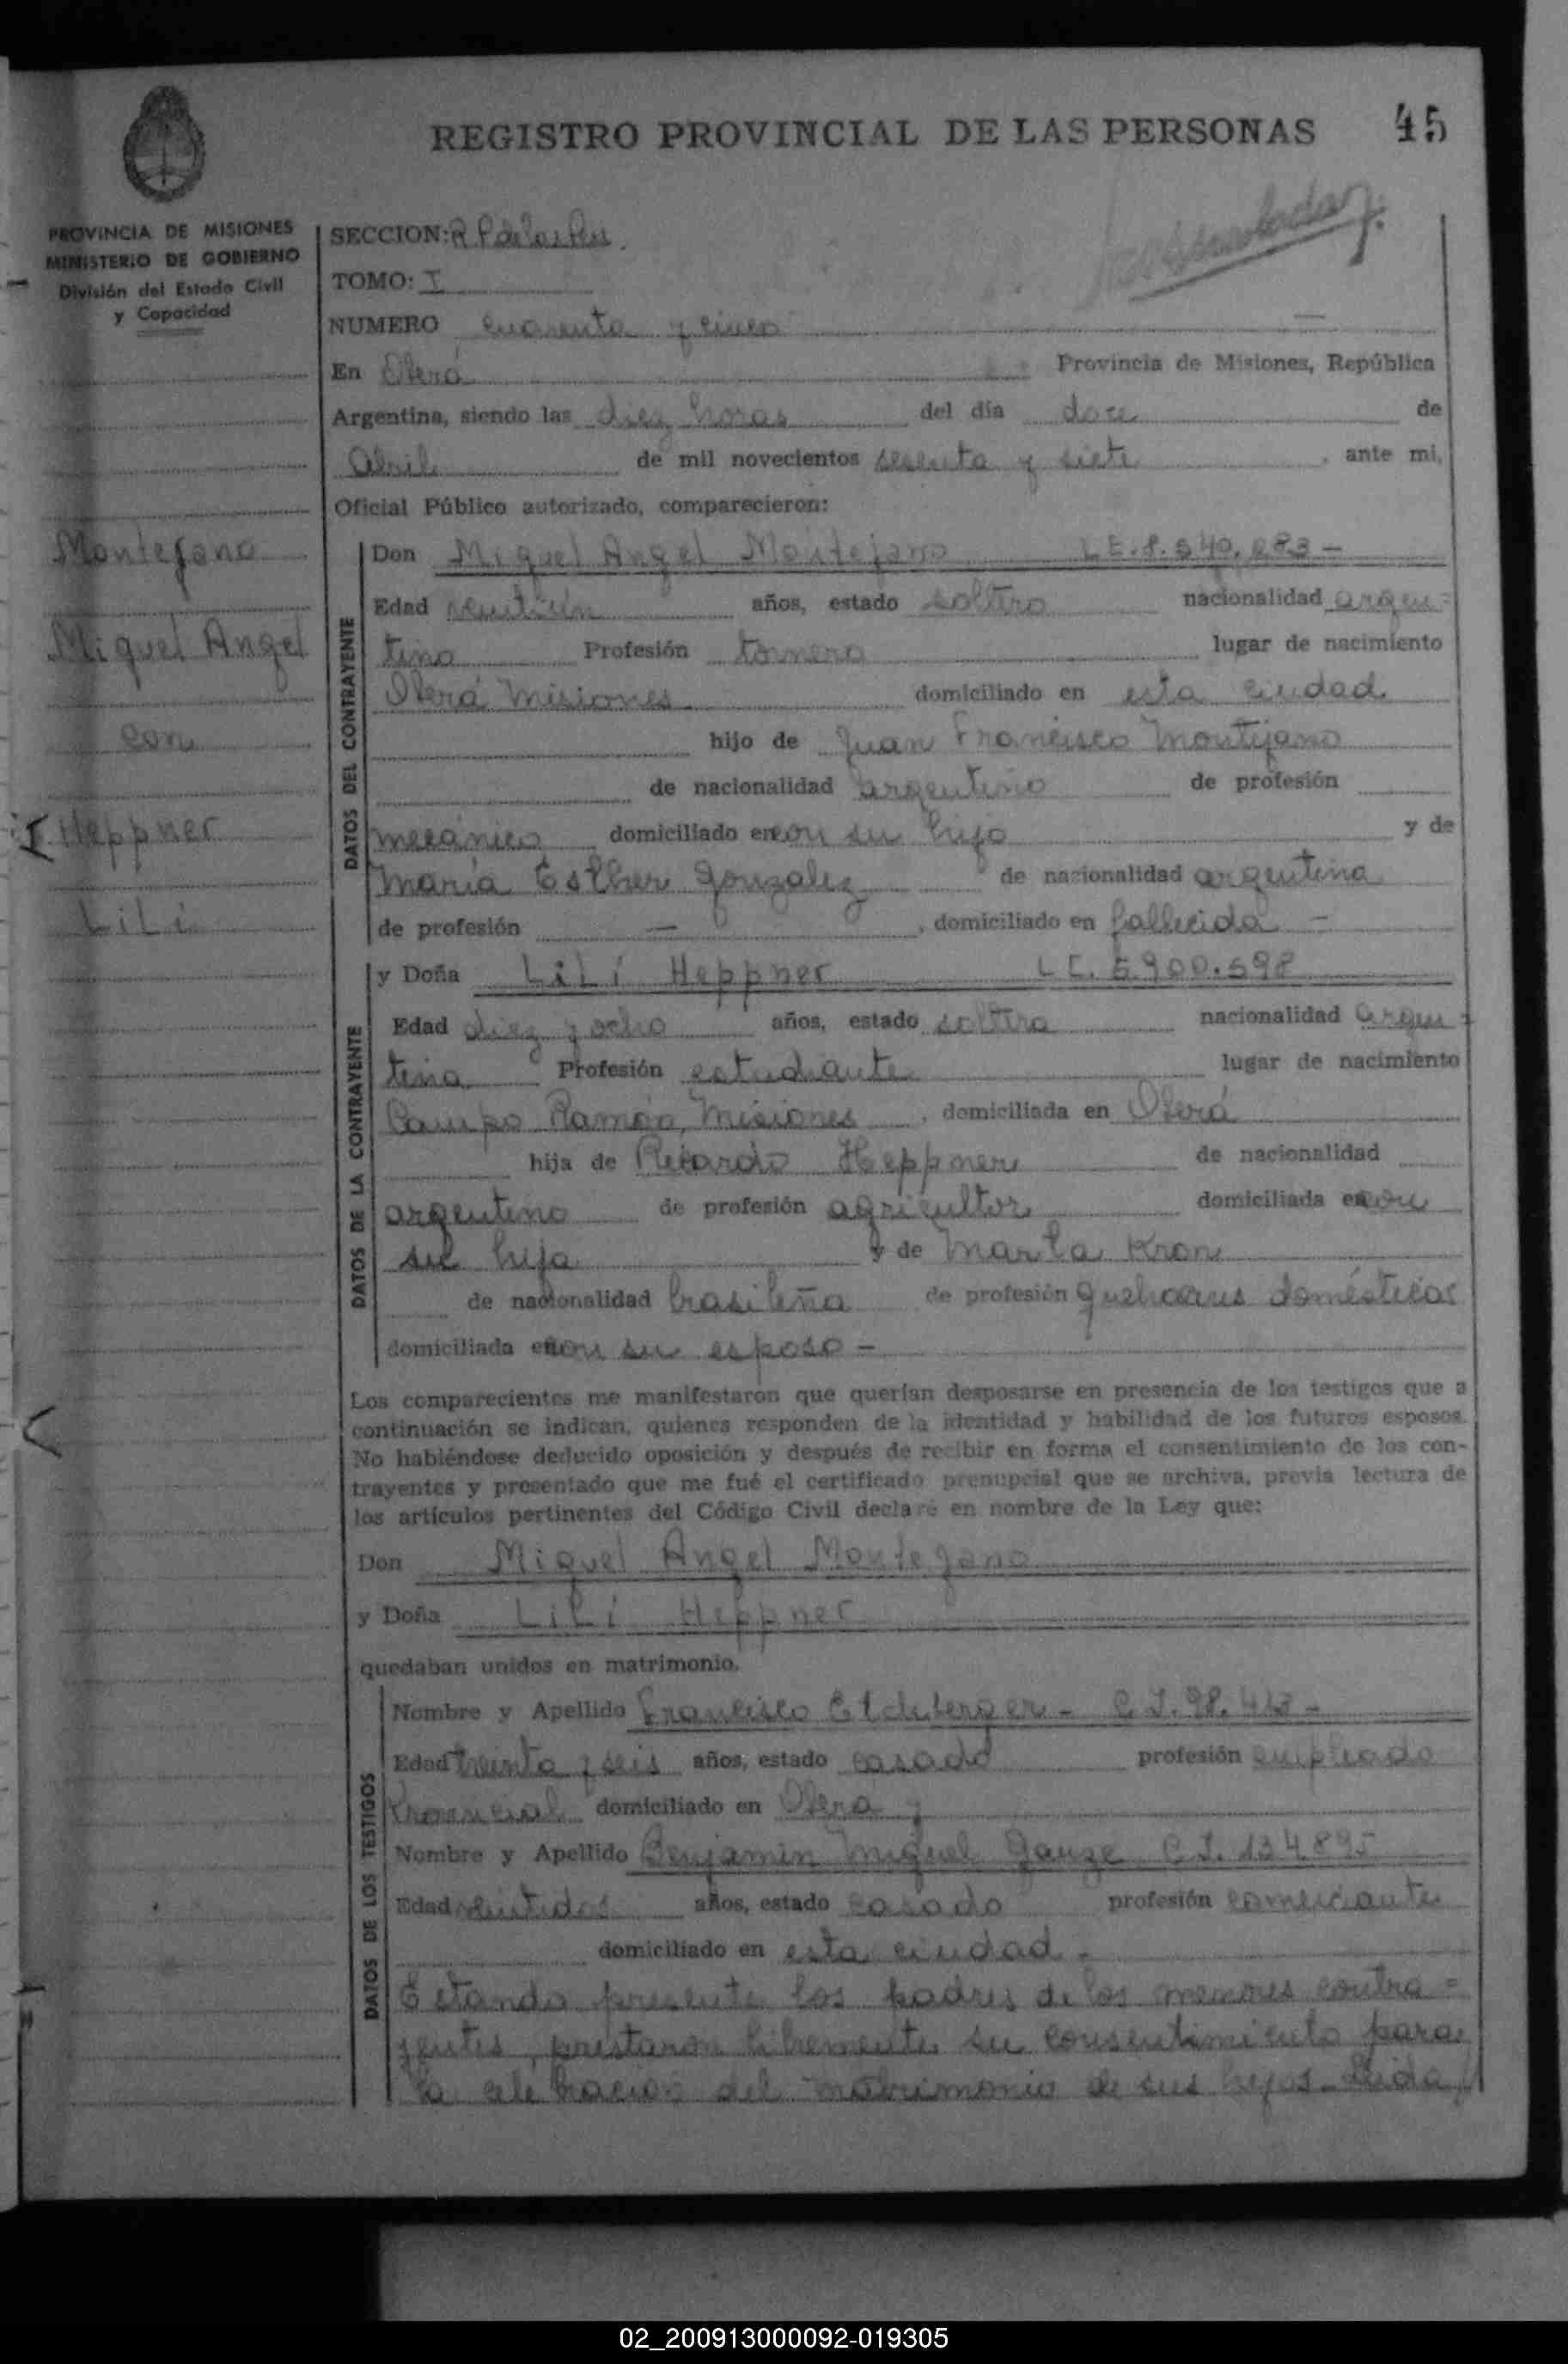 REGISTRO PROVINCIAL DE LAS PERSONAS 45
PROVINCIA DE MISIONES
MINISTERIO DE GOBIERNO
División del Estado Civil
y Capacidad
Montejano
Miguel Angel
con
Heppner
Lili
SECCION: R. P. de las Per.
TOMO: I
NUMERO cuarenta y cinco
En Oberá Provincia de Misiones, República
Argentina, siendo las diez horas del día doce de
Abril de mil novecientos sesenta y siete, ante mi,
Oficial Público autorizado, comparecieron:
DATOS DEL CONTRAYENTE
Don Miguel Angel Montejano L.E. 8.540.283 -
Edad veintiún años, estado soltero nacionalidad argen-
tino Profesión tornero lugar de nacimiento
Oberá Misiones domiciliado en esta ciudad
hijo de Juan Francisco Montejano
de nacionalidad argentino de profesión
mecánico domiciliado en con su hijo y de
María Esther Gonzalez de nacionalidad argentina
de profesión — , domiciliado en fallecida -
DATOS DE LA CONTRAYENTE
y Doña Lili Heppner L.C. 5.900.598
Edad diez y ocho años, estado soltera nacionalidad argen-
tina Profesión estudiante lugar de nacimiento
Campo Ramón, Misiones , domiciliada en Oberá
hija de Ricardo Heppner de nacionalidad
argentino de profesión agricultor domiciliada en con
su hija y de Marta Kron
de nacionalidad brasileña de profesión quehaceres domésticos
domiciliada en con su esposo -
Los comparecientes me manifestaron que querían desposarse en presencia de los testigos que a
continuación se indican, quienes responden de la identidad y habilidad de los futuros esposos.
No habiéndose deducido oposición y después de recibir en forma el consentimiento de los con-
trayentes y presentado que me fué el certificado prenupcial que se archiva, previa lectura de
los artículos pertinentes del Código Civil declaré en nombre de la Ley que:
Don Miguel Angel Montejano
y Doña Lili Heppner
quedaban unidos en matrimonio.
DATOS DE LOS TESTIGOS
Nombre y Apellido Francisco - C.I. 98.
Edad treinta y seis años, estado casado profesión empleado
Provincial domiciliado en Oberá ;
Nombre y Apellido Benjamin Miguel Gauze C.I. 134895
Edad veintidos años, estado casado profesión comerciante
domiciliado en esta ciudad -
Estando presente los padres de los menores contra-
yentes, prestaron libremente su consentimiento para
la celebración del matrimonio de sus hijos. Leida
02_200913000092-019305